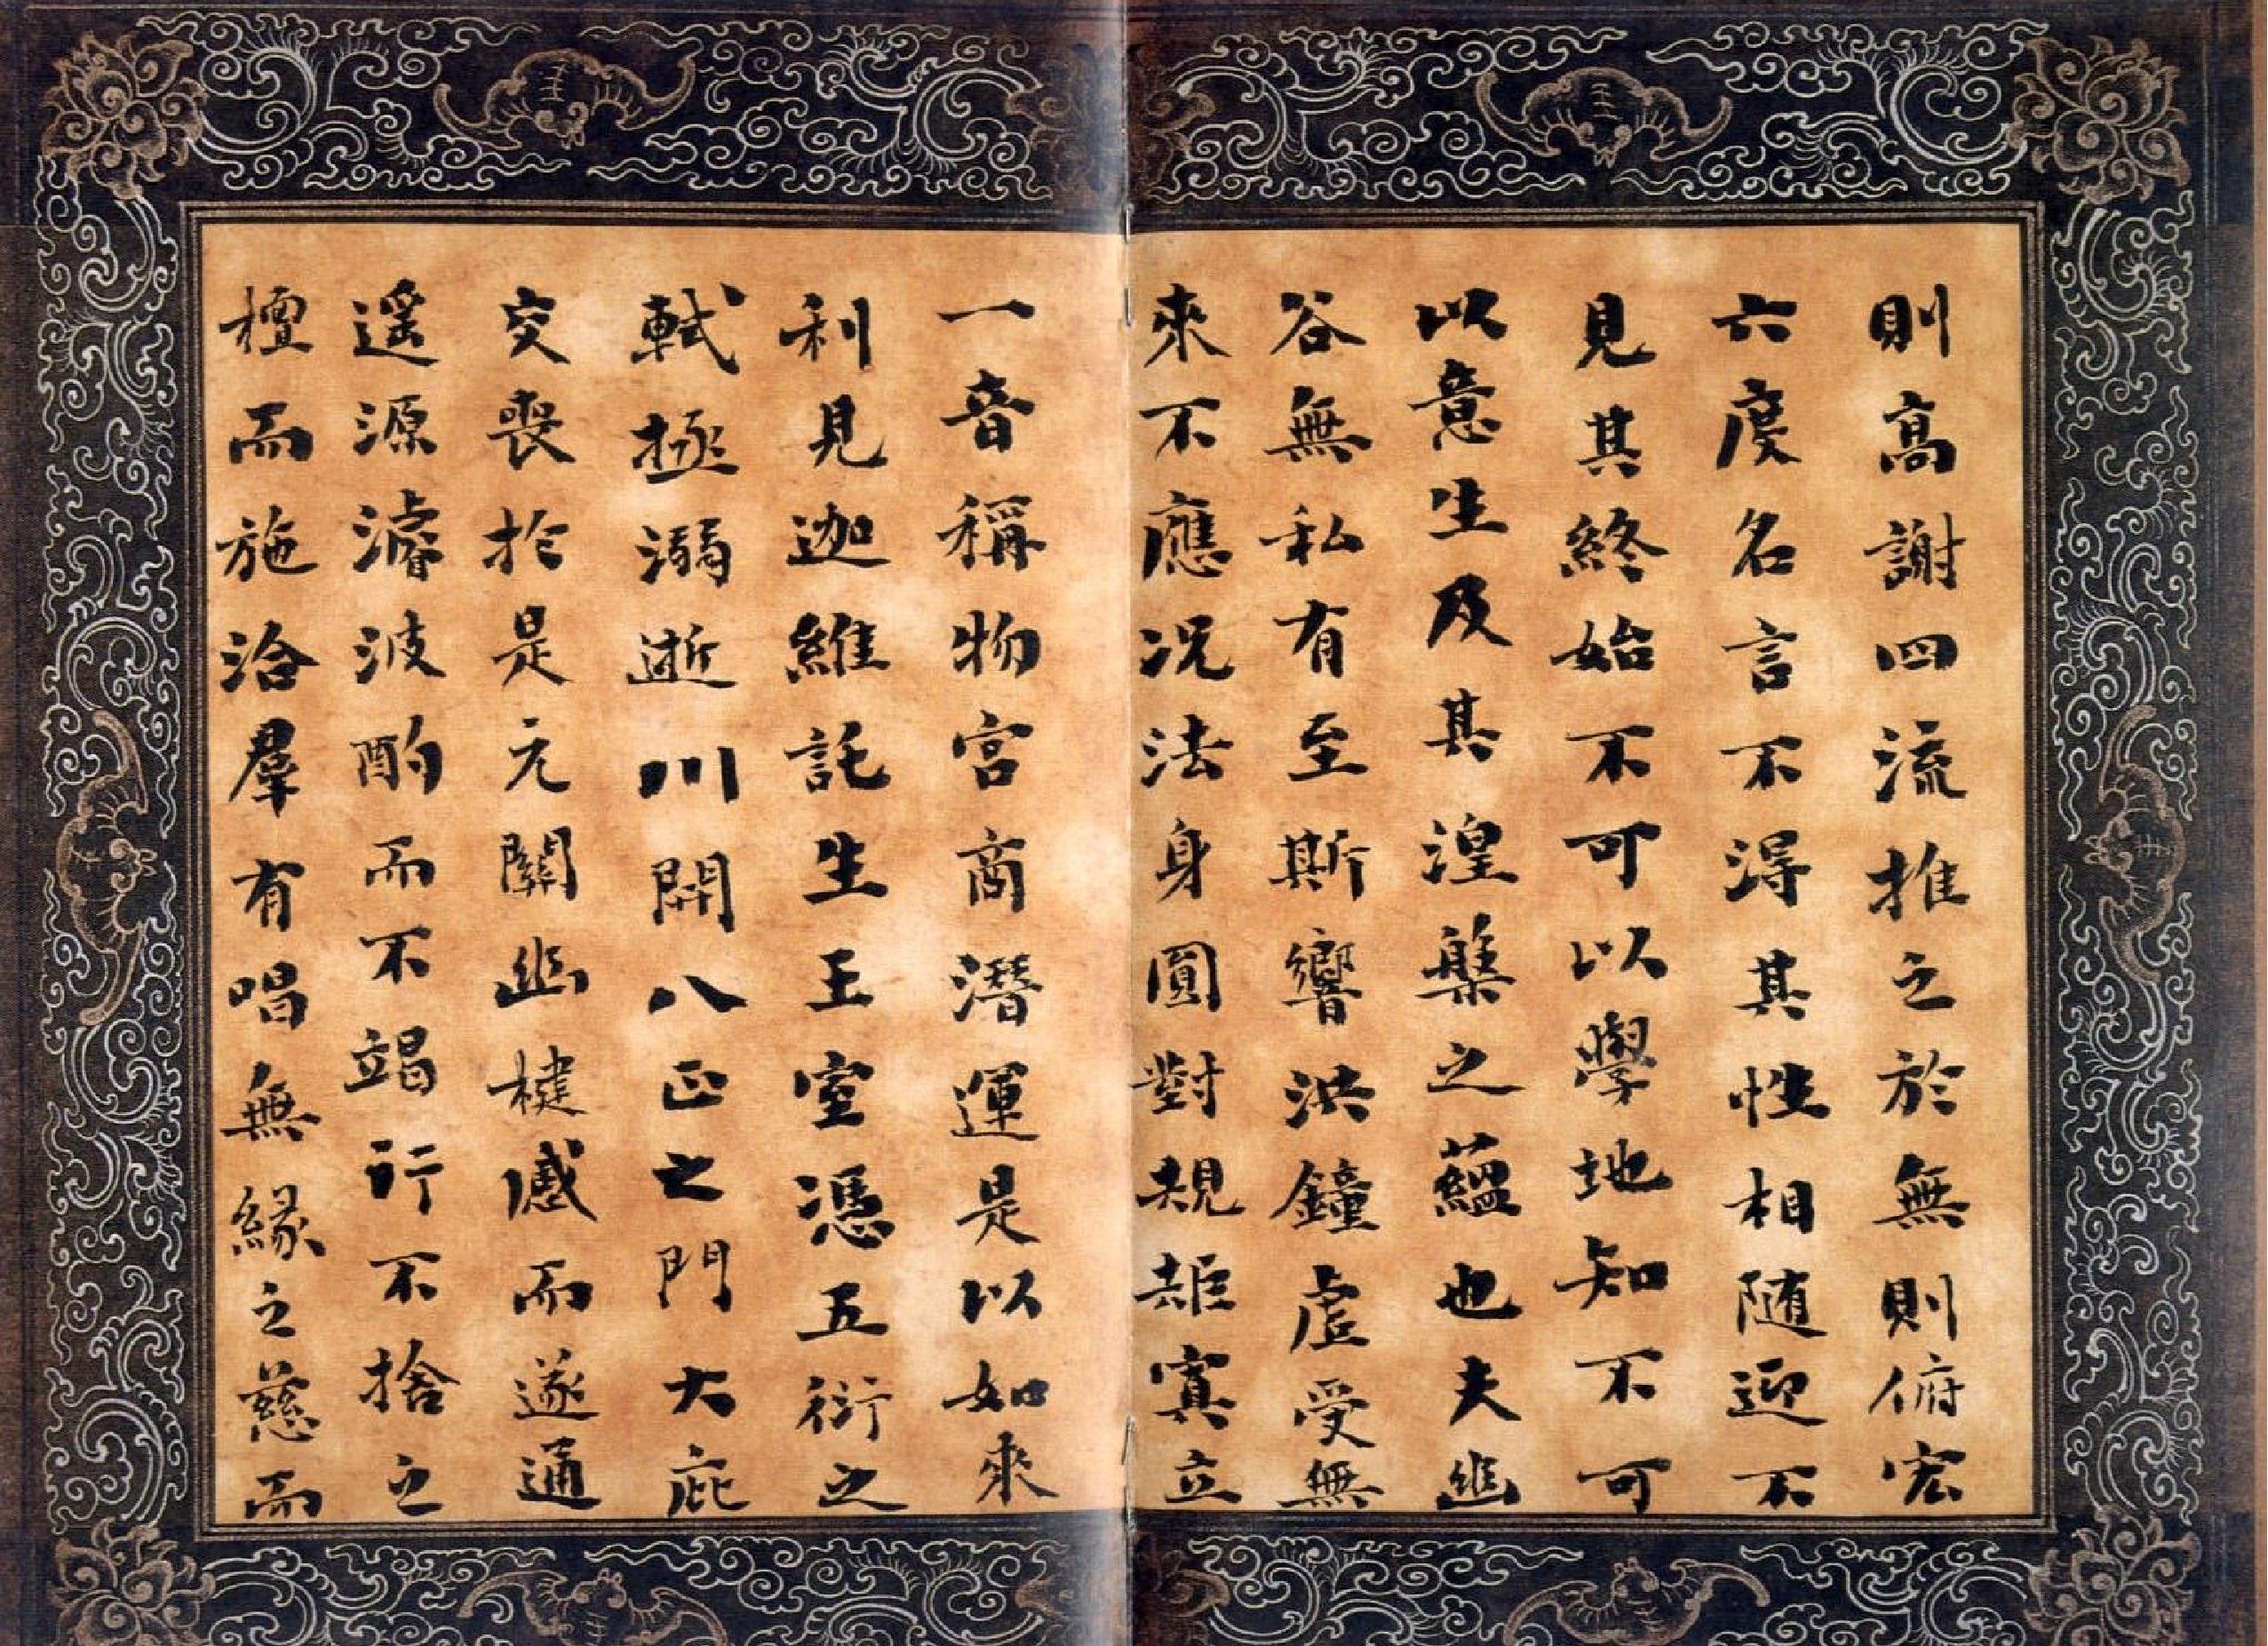 則高謝四流推之於無則俯宏
六度名言不得其性相随迎不
見其終始不可以學地知不可
以意生及其湼槃之蘊也夫幽
谷無私有至斯響洪鐘虛受無
來不應况法身圓對規矩寘立
一音稱物宮商潛運是以如來
利見迦維託生王室憑五衍之
軾拯溺逝川開八正之門大庇
交喪於是元關幽楗感而遂通
遥源濬波酌而不竭行不捨之
檀而施洽羣有唱無緣之慈而